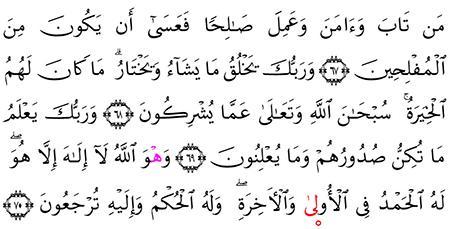 مَن تَابَ وَءَامَنَ وَعَمِلَ صَـٰلِحًا فَعَسَىٰٓ أَن يَكُونَ مِنَ
ٱلْمُفْلِحِينَ ﴿٦٧﴾ وَرَبُّكَ يَخْلُقُ مَا يَشَآءُ وَيَخْتَارُ ۗ مَا كَانَ لَهُمُ
ٱلْخِيَرَةُ ۚ سُبْحَـٰنَ ٱللَّهِ وَتَعَـٰلَىٰ عَمَّا يُشْرِكُونَ ﴿٦٨﴾ وَرَبُّكَ يَعْلَمُ
مَا تُكِنُّ صُدُورُهُمْ وَمَا يُعْلِنُونَ ﴿٦٩﴾ وَهْوَ ٱللَّهُ لَآ إِلَـٰهَ إِلَّا هُوَ ۖ
لَهُ ٱلْحَمْدُ فِى ٱلْأُولىٰ وَٱلْـَٔاخِرَةِ ۖ وَلَهُ ٱلْحُكْمُ وَإِلَيْهِ تُرْجَعُونَ ﴿٧٠﴾